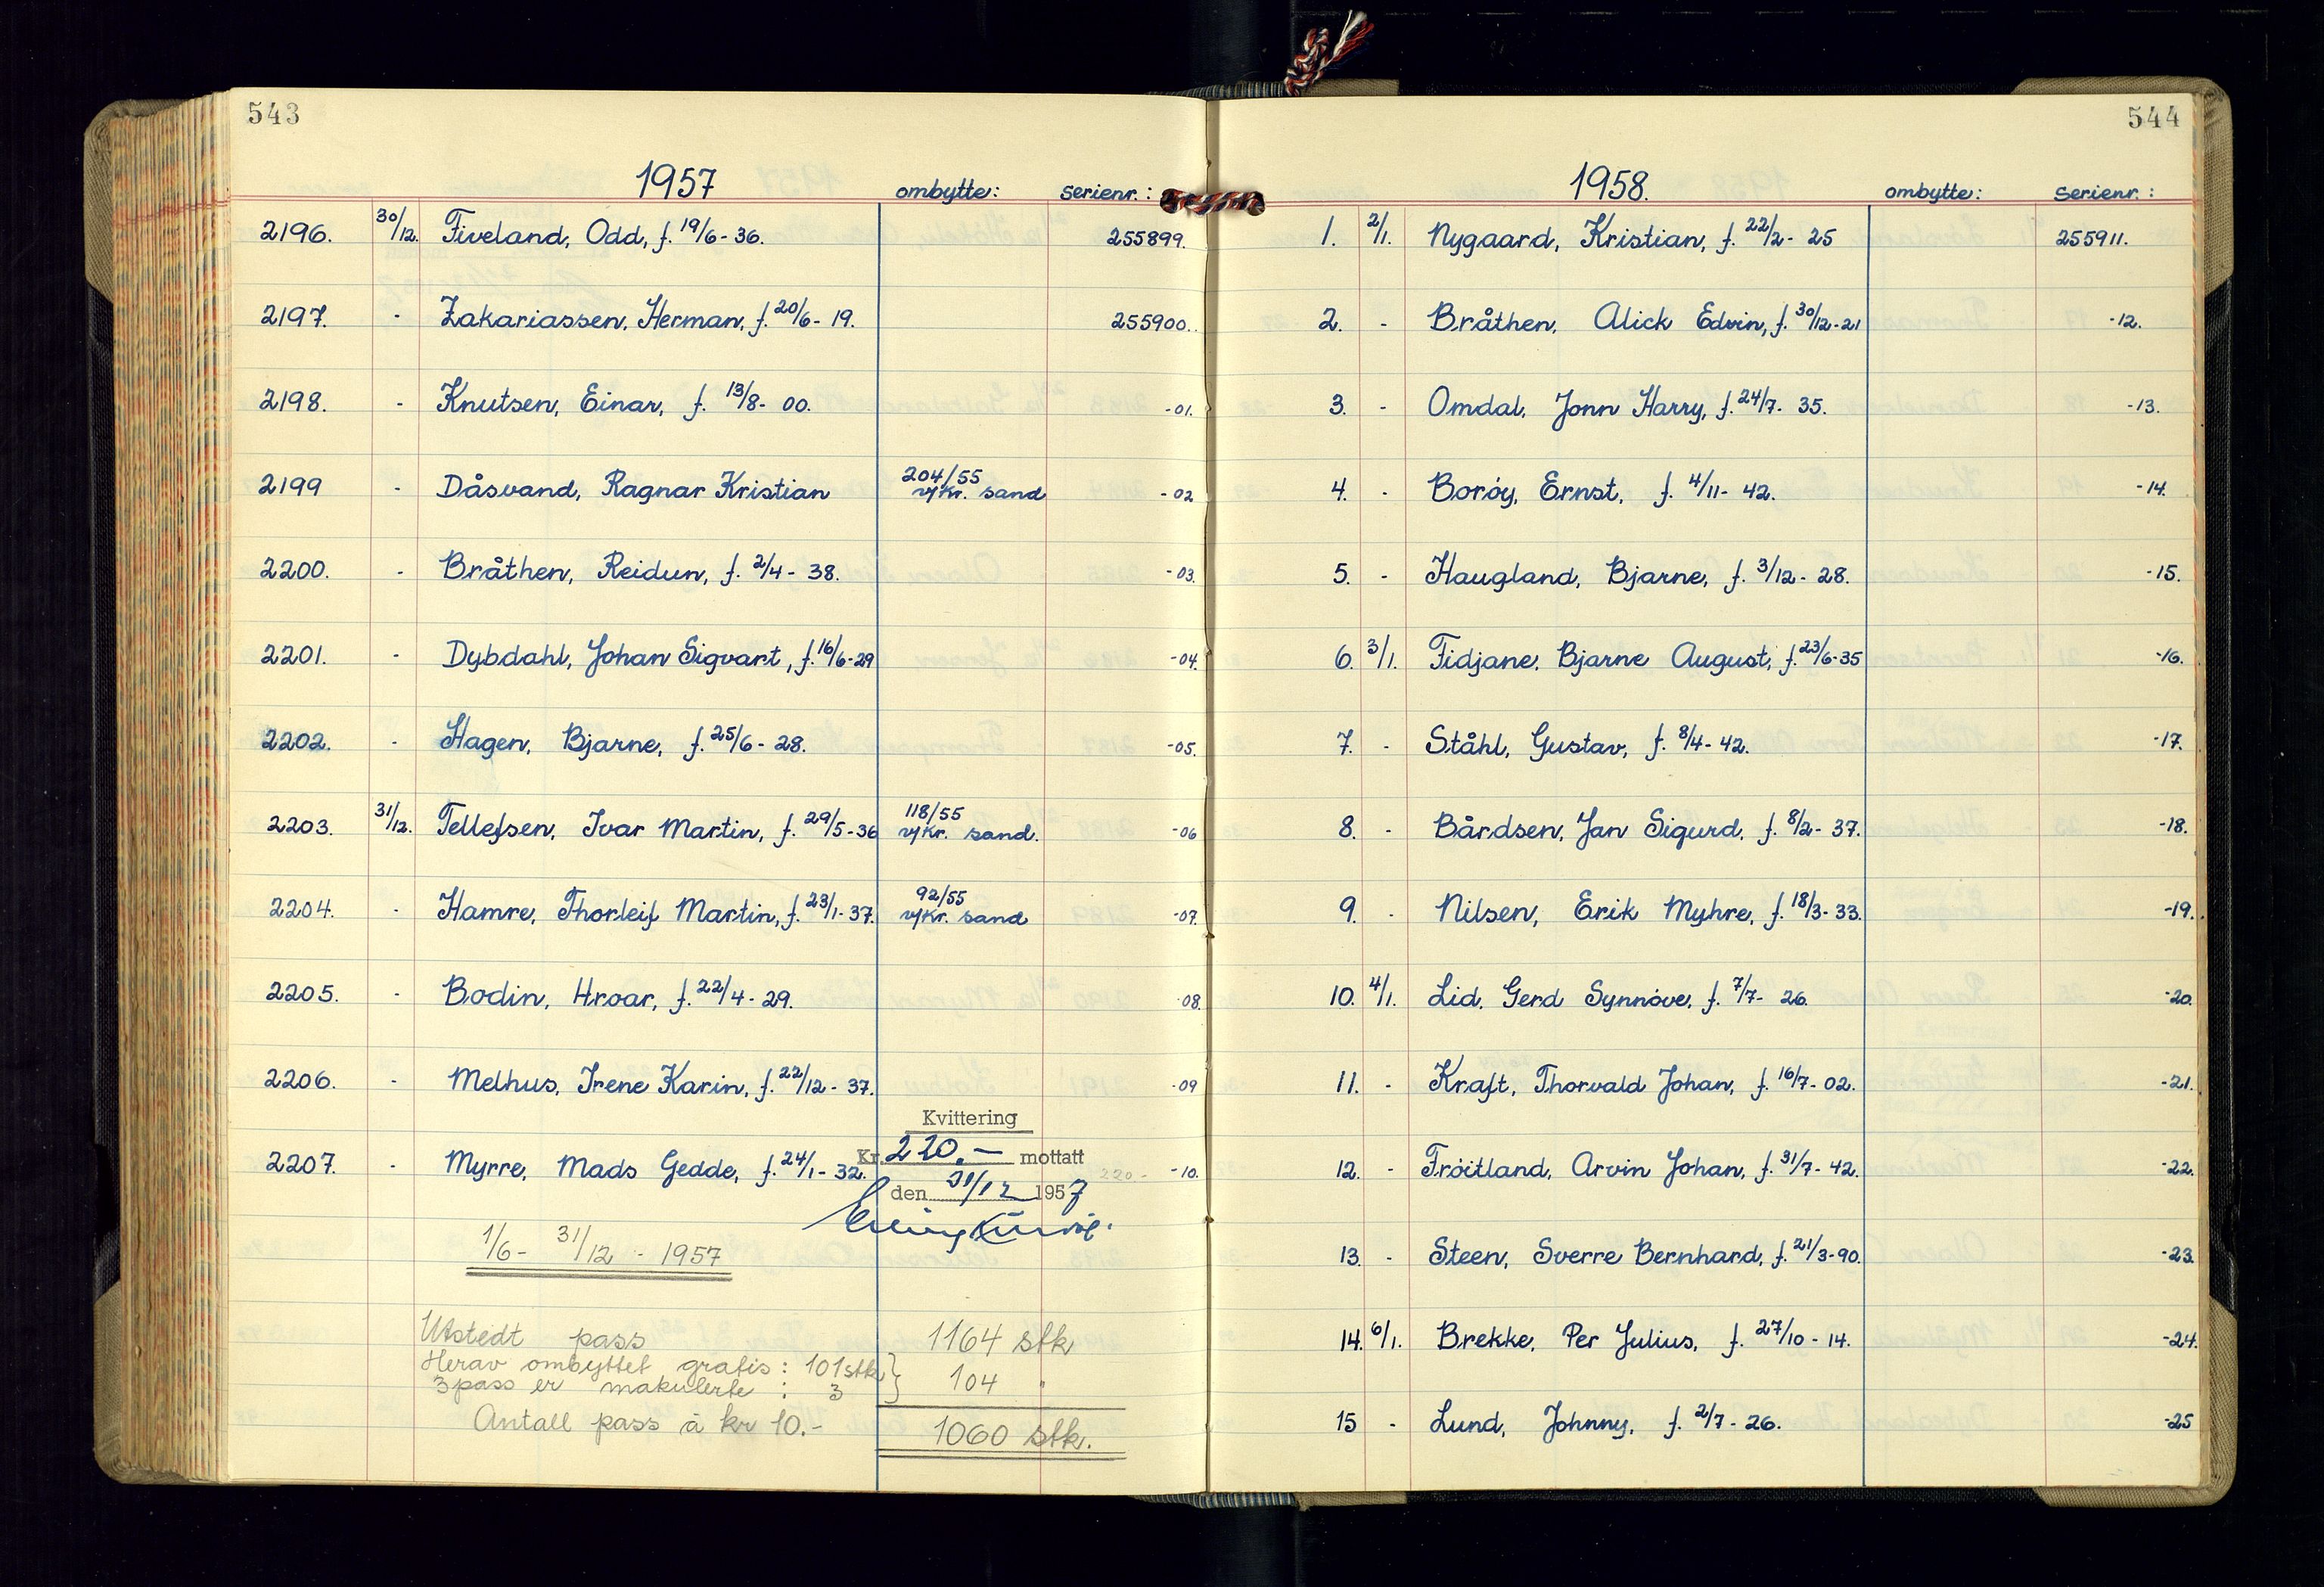 543
1957 ombytte: serienr.:
2196. 30/12. Fiveland, Odd, f. 19/6-36. 255899.
2197. - Zakariassen, Herman, f. 20/6-19. 255900.
2198. - Knutsen, Einar, f. 13/8-00. -01.
2199 - Dåsvand, Ragnar Kristian 204/55 v/Kr. sand -02
2200. - Bråthen, Reidun, f. 2/4-38. -03.
2201. - Dybdahl, Johan Sigvart, f. 16/6-29 -04.
2202. - Hagen, Bjarne, f. 25/6-28. -05.
2203. 31/12. Tellefsen, Ivar Martin, f. 29/5-36 118/55 v/Kr. sand. -06
2204. - Hamre, Thorleif Martin, f. 23/1-37. 92/55 v/Kr. sand -07.
2205. - Bodin, Hroar, f. 22/4-29. -08.
2206. - Melhus, Irene Karin, f. 22/12-37. -09
Kvittering
Kr. 220.- mottatt
2207. - Myrre, Mads Gedde, f. 24/1-32. 220- -10.
den 31/12 1957
1/6- 31/12 - 1957
Utstedt pass 1164 stk
Herav ombyttet gratis: 101stk } 104 "
3pass er makulerte : 3
Antall pass à kr 10.- 1060 stk.
544
1958. ombytte: serienr.:
1. 2/1. Nygaard, Kristian, f. 22/2-25 255911.
2. - Bråthen, Alick Edvin, f. 30/12-21 -12.
3. - Omdal, Jonn Harry, f. 24/7-35. -13.
4. - Borøy, Ernst, f. 4/11-42. -14.
5. - Haugland, Bjarne, f. 3/12-28. -15.
6. 3/1. Fidjane, Bjarne August, f. 23/6-35 -16.
7. - Ståhl, Gustav, f. 8/4-42. -17.
8. - Bårdsen, Jan Sigurd, f. 8/2-37. -18.
9. - Nilsen, Erik Myhre, f. 18/3-33. -19.
10. 4/1. Lid, Gerd Synnøve, f. 7/7-26. -20.
11. - Kraft, Thorvald Johan, f. 16/7-02. -21.
12. - Frøitland, Arvin Johan, f. 31/7-42. -22.
13. - Steen, Sverre Bernhard, f. 21/3-90. -23.
14. 6/1. Brekke, Per Julius, f. 27/10-14. -24.
15 - Lund, Johnny, f. 2/7-26. -25